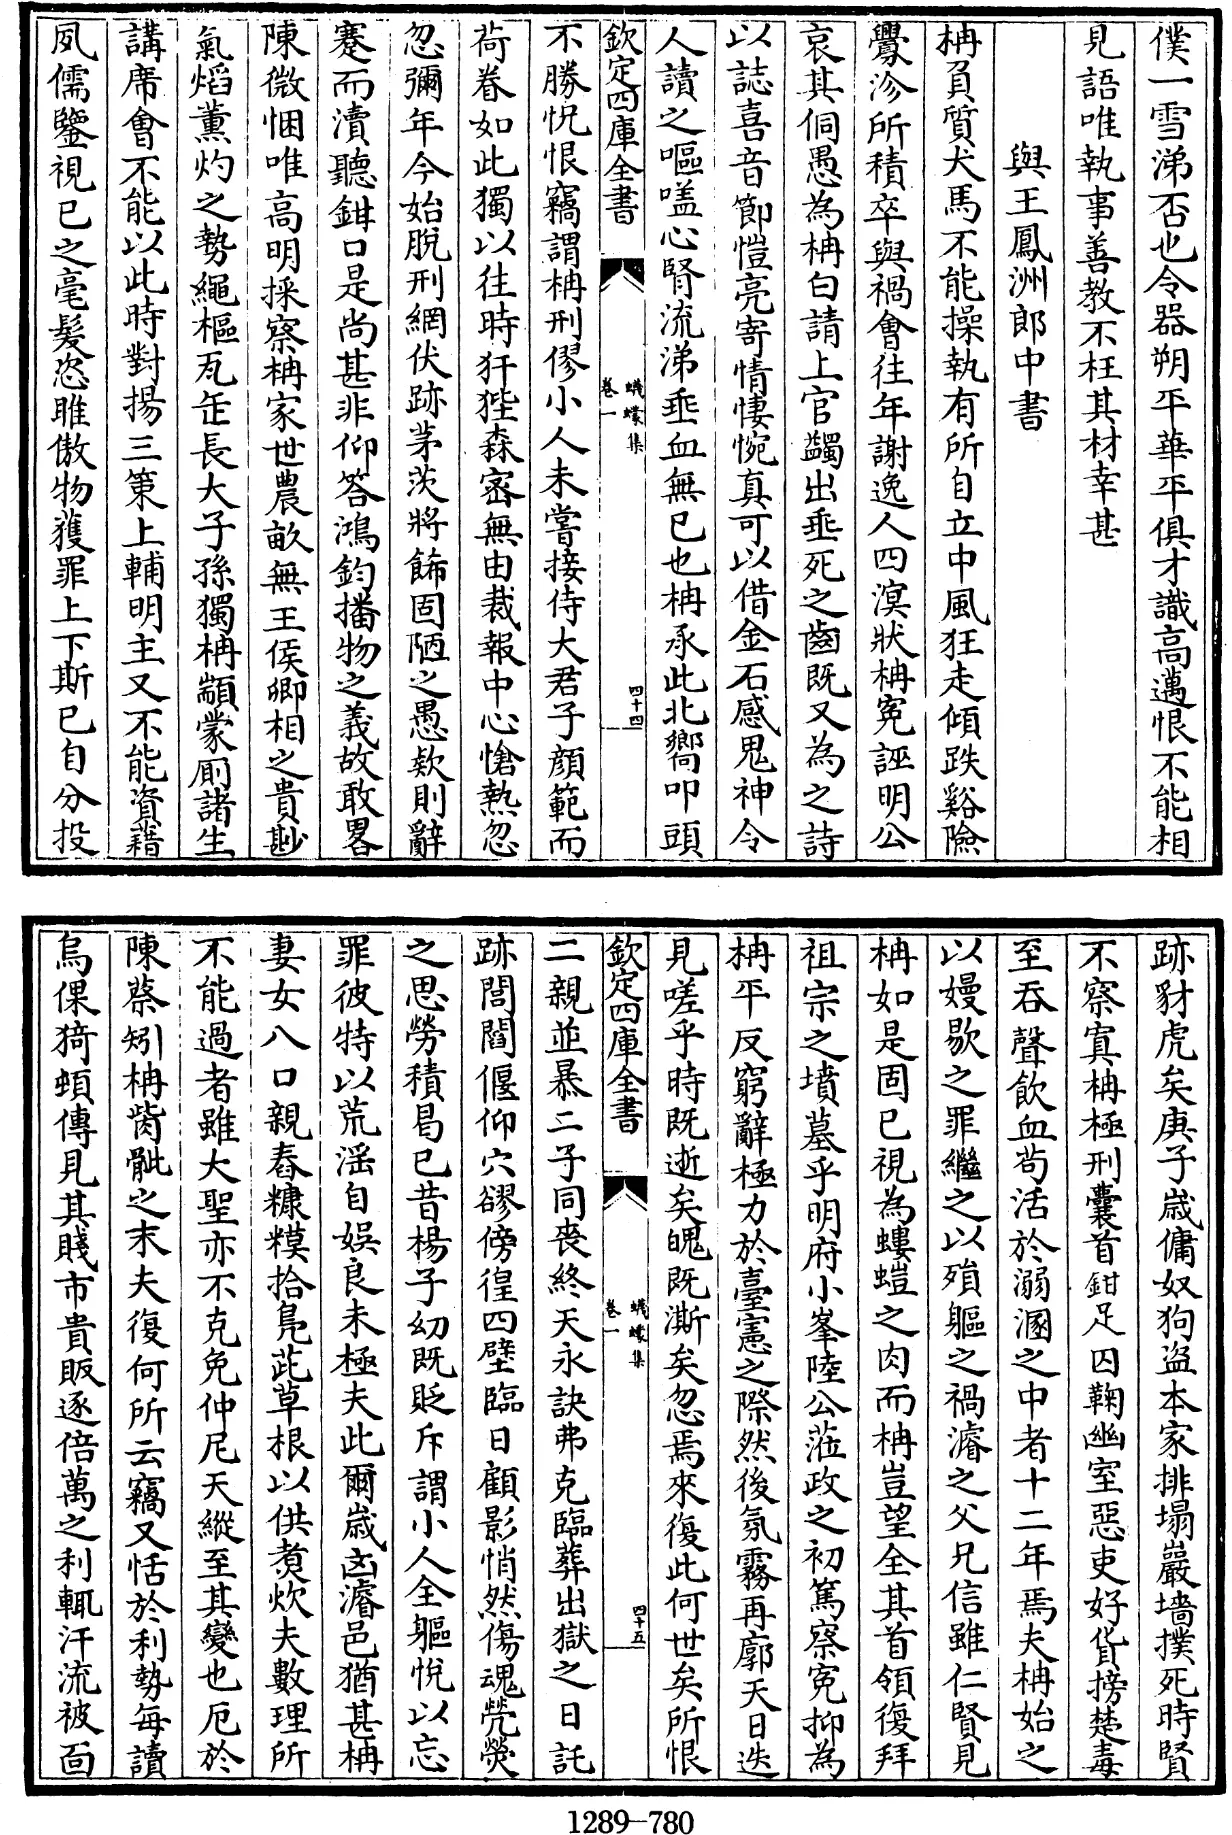 僕一雪涕否也令器朔平華平俱才識高邁恨不能相
見語唯執事善教不枉其材幸甚
與王鳳洲郎中書
柟負質犬馬不能操執有所自立中風狂走傾跌谿險
釁沴所積卒與禍會往年謝逸人四溟狀柟寃誣明公
哀其侗愚為柟白請上官蠲出垂死之齒既又為之詩
以誌喜音節愷亮寄情悽惋真可以借金石感鬼神令
人讀之嘔嗑心腎流涕垂血無已也柟承此北嚮叩頭
欽定四庫全書
蠛蠓集
卷一
四十四
不勝怳恨竊謂柟刑僇小人未嘗接侍大君子顔範而
荷眷如此獨以往時犴狴森密無由裁報中心愴熱忽
忽彌年今始脫刑網伏跡茅茨將餙固陋之愚欵則辭
蹇而瀆聽鉗口是尚甚非仰答鴻鈞播物之義故敢畧
陳微悃唯高明採察柟家世農畝無王侯卿相之貴尠
氣熖薰灼之勢繩樞瓦缶長大子孫獨柟顓蒙厠諸生
講席會不能以此時對揚三策上輔明主又不能資藉
夙儒鑒視已之毫髮恣睢傲物獲罪上下斯已自分投
跡豺虎矣庚子歳傭奴狗盗本家排塌巖墻撲死時賢
不察寘柟極刑囊首鉗足囚鞠幽室惡吏好貨搒楚毒
至吞聲飲血茍活於溺溷之中者十二年焉夫柟始之
以嫚歇之罪繼之以殞軀之禍濬之父兄信雖仁賢見
柟如是固已視為螻螘之肉而柟豈望全其首領復拜
祖宗之墳墓乎明府小峯陸公蒞政之初篤察寃抑為
柟平反窮辭極力於臺憲之際然後氛霧再廓天日迭
見嗟乎時既逝矣魄既澌矣忽焉來復此何世矣所恨
欽定四庫全書
蠛蠓集
卷一
四十五
二親並暴二子同喪終天永訣弗克臨葬出獄之日託
跡閭閻偃仰穴㝫傍徨四壁臨日顧影悄然傷魂煢熒
之思勞積曷已昔楊子幼既貶斥謂小人全軀悅以忘
罪彼特以荒滛自娱良未極夫此爾歳凶濬邑猶甚柟
妻女八口親舂糠糗拾鳧茈草根以供煑炊夫數理所
不能過者雖大聖亦不克免仲尼天縱至其變也厄於
陳蔡矧柟胔骴之末夫復何所云竊又恬於利勢每讀
烏倮猗頓傳見其賤市貴販逐倍萬之利輒汗流被面
1289-780